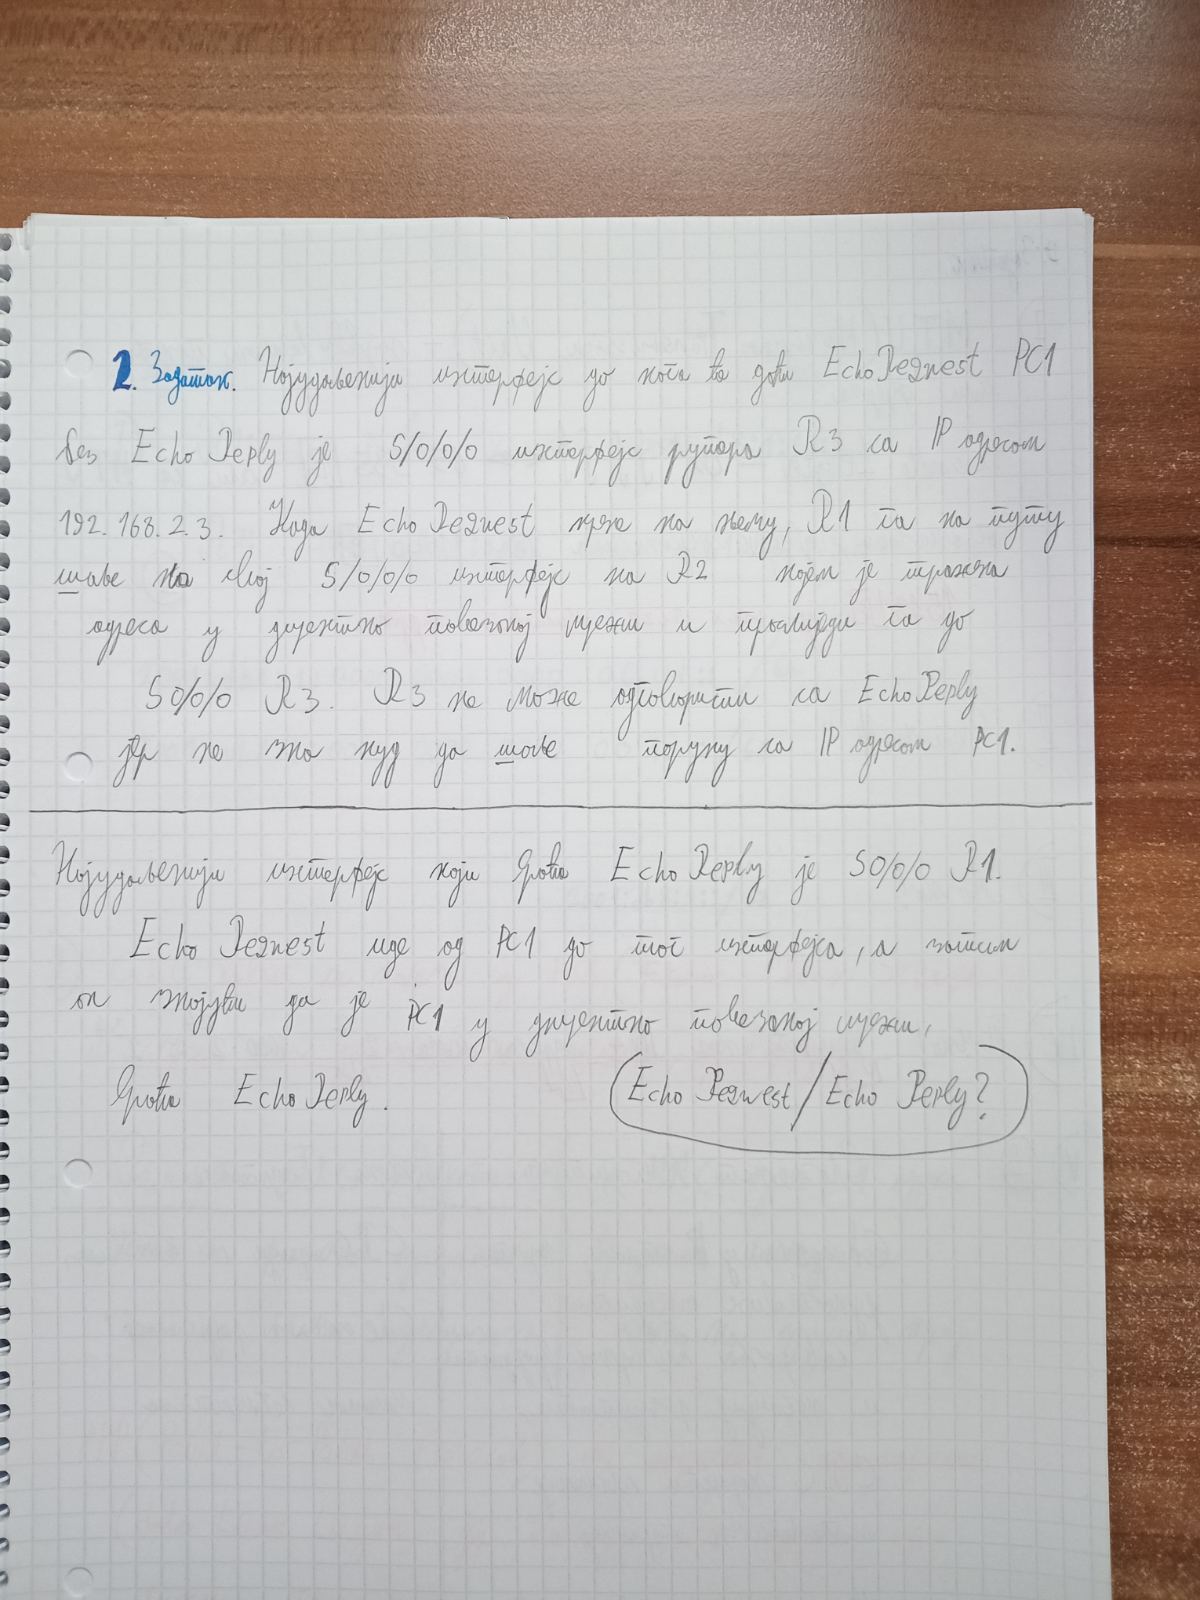 2. Задатак. Најудаљенији интерфејс до кога ће доћи Echo Request PC1
без Echo Reply је S/0/0/0 интерфејс рутера R3 са IP адресом
192.168.2.3. Када Echo Request крене ка њему, R1 га на путу
шаље на свој S/0/0/0 интерфејс на R2 којем је тражена
адреса у директно повезаној мрежи и проследи га до
S0/0/0 R3. R3 не може одговорити са Echo Reply
јер не зна куд да шаље поруку са IP адресом PC1.
Најудаљенији интерфејс који враћа Echo Reply је S0/0/0 R1.
Echo Request иде од PC1 до тог интерфејса, а затим
он знајући да је PC1 у директно повезаној мрежи,
враћа Echo Reply.
Echo Request/Echo Reply?